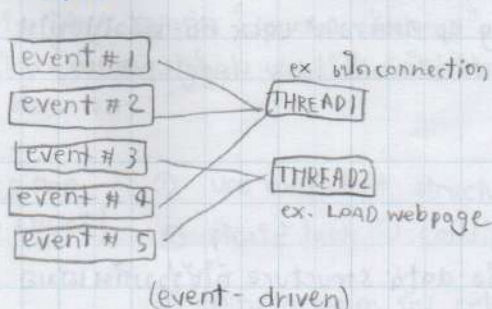 event # 1
event # 2
event # 3
event # 4
event # 5
ex เปิด connection
THREAD1
THREAD2
ex. LOAD webpage
(event - driven)